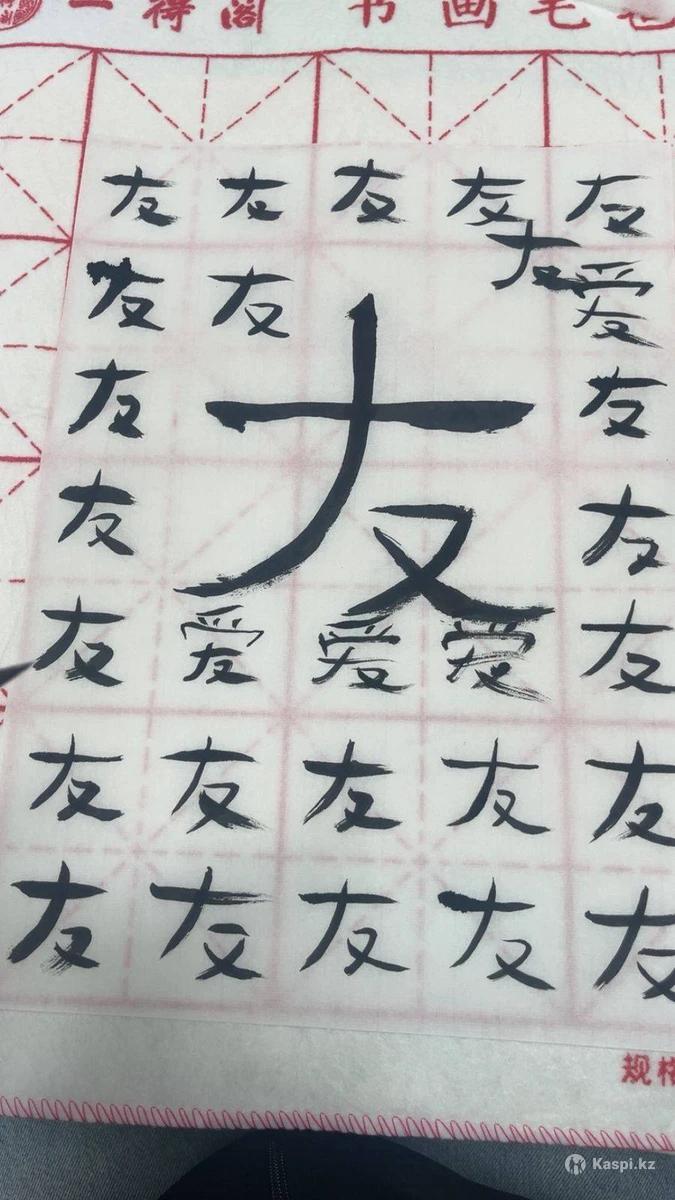 一得阁 书画毛
友 友 友 友 友
友
友 友 爱
友 友
友
友 友
友
友 爱 爱 爱 友
友 友 友 友 友
友 友 友 友 友
规格
Kaspi.kz